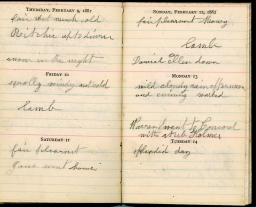 Thursday, February 9, 1882
fair but much cold
Ritchie up to dinner
snow in the night
Friday 10
squally windy and cold
lamb
Saturday 11
fair pleasant
Jane went home
Sunday, February 12, 1882
fair pleasant Henry
lamb
Daniel Ellen down
Monday 13
mild cloudy rain afternoon
and evening
Warren went to Concord
with Holmes
Tuesday 14
splendid day